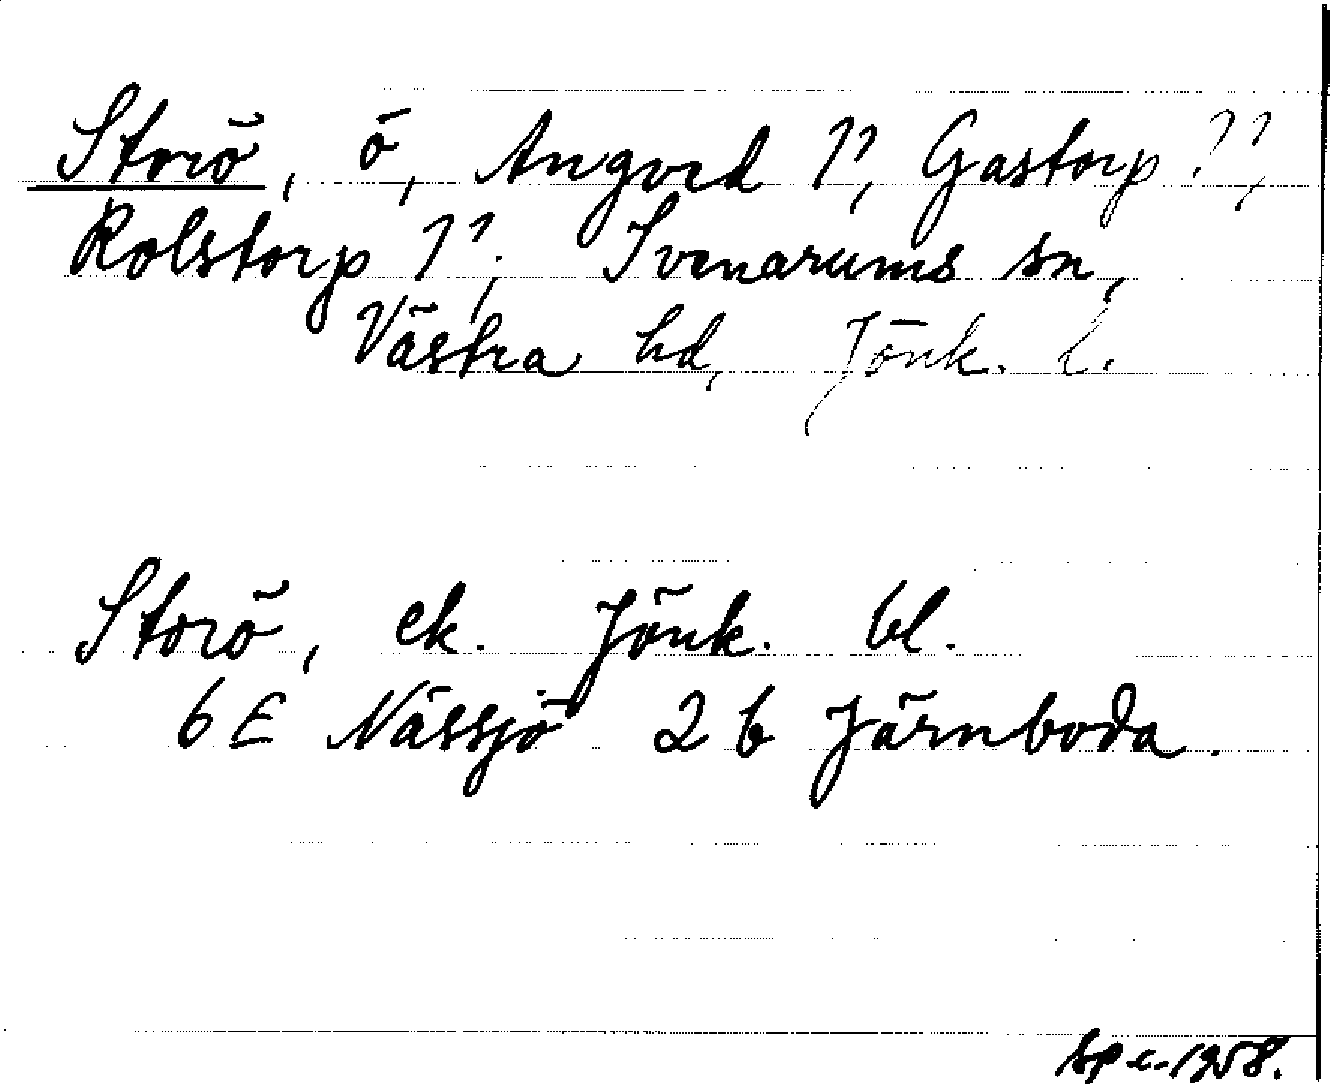 Storö, ö, Angord ??, Gastorp ??,
Rolstorp ??, Svenarums sn,
Västra hd, Jönk. l.
Storö, ek. Jönk. bl.
6 E Nässjö 2 b Järnboda.
1958.